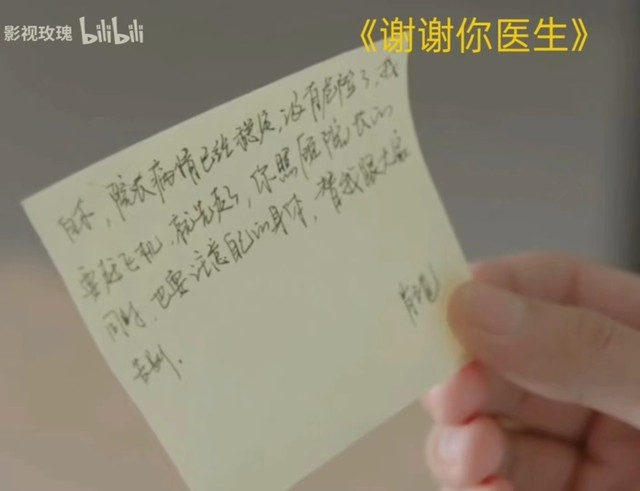 影视玫瑰 bilibili
《谢谢你医生》
白术，院长病情已经稳定，没有危险了，我
要赶飞机，就先走了，你照顾院长的
同时，也要注意自己的身体，替我跟大家
告别．
肖砚